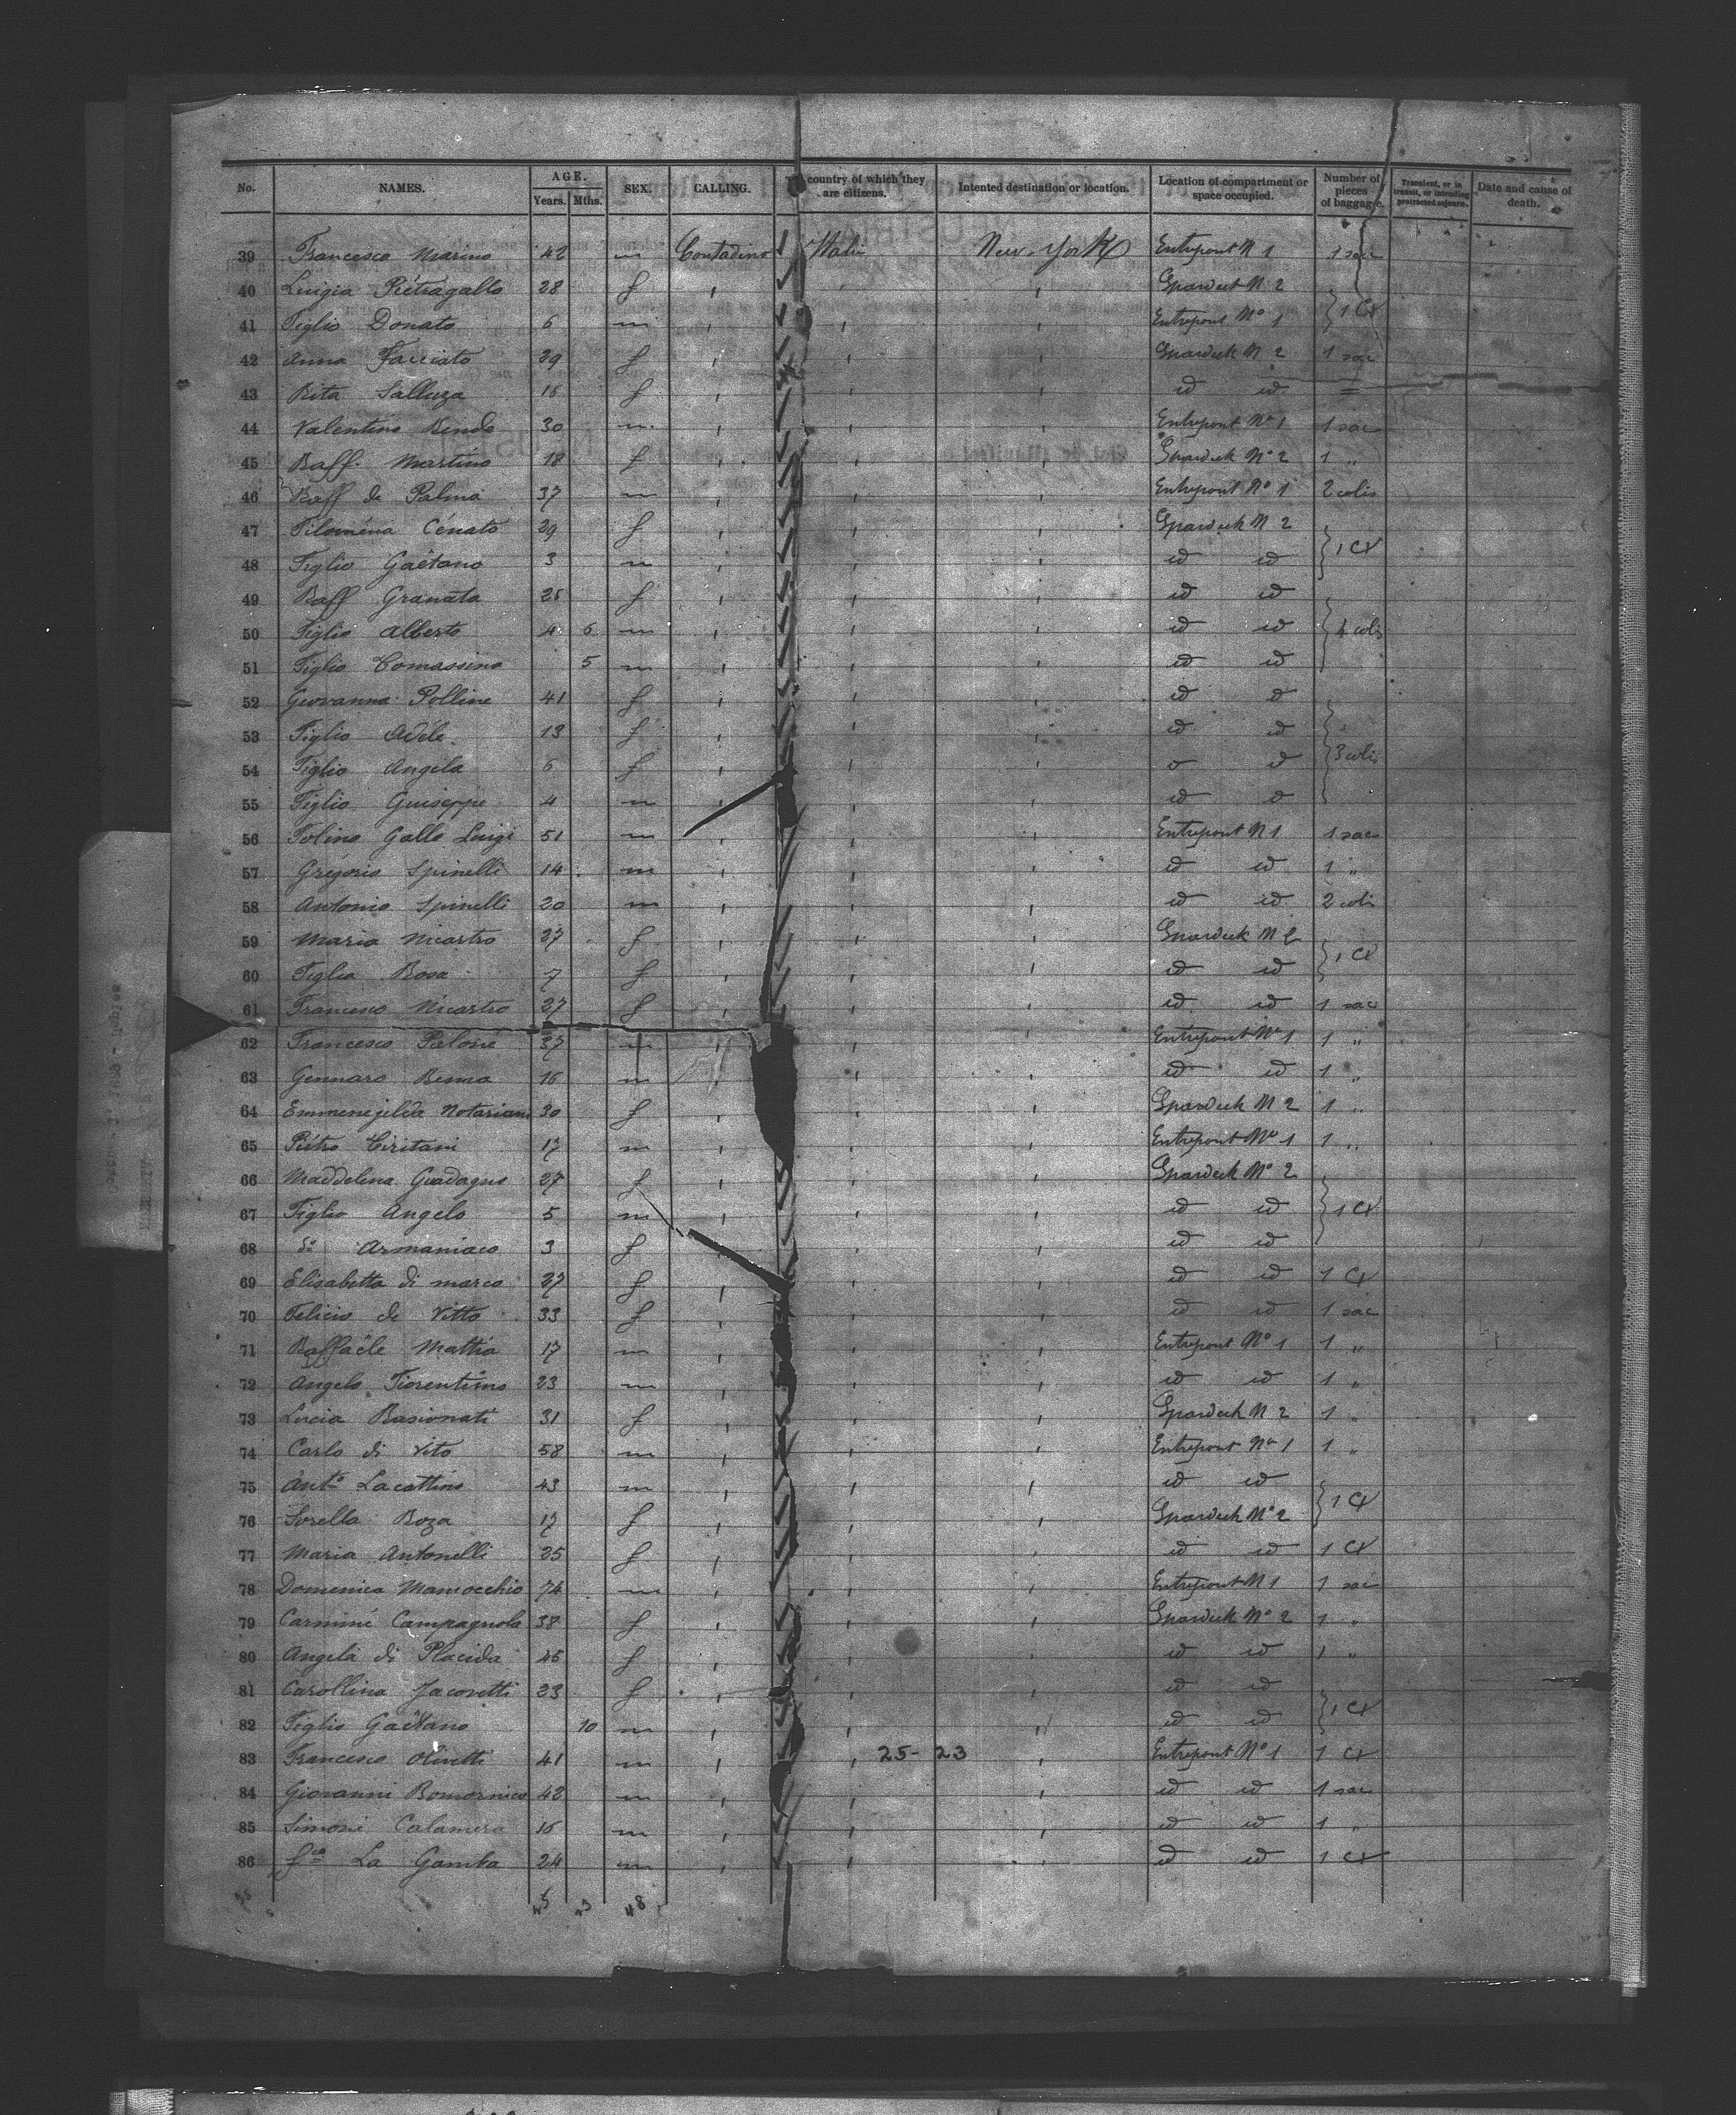 No. NAMES. AGE. Years. Mths. SEX. CALLING. country of which they are citizens. Intented destination or location. Location of compartment or space occupied. Number of pieces of baggage. Transient, or in transit, or intending protracted sojourn. Date and cause of death.
39 Francesco Marino 42 m Contadino Italie New-York Entrepont N 1 1 sac
40 Luigia Piétragallo 28 f Spardeck N 2
41 Figlio Donato 6 m Entrepont No 1 } 1 Cx
42 Anna Facciato 39 f Spardeck N 2 1 sac
43 Rita Salluza 16 f id id =
44 Valentino Bendo 30 m Entrepont No 1 1 sac
45 Raff. Martino 18 f Spardeck No 2 1 "
46 Raff de Palma 37 m Entrepont No 1 2 colis
47 Filoména Cénato 29 f Spardeck N 2
48 Figlio Gaëtano 3 m id id } 1 Cx
49 Raff Granata 26 f id id
50 Figlio Alberto 4 6 m id id } 4 colis
51 Figlio Tomassino 5 m id id
52 Giovanna Polline 41 f id d
53 Figlio Adéle 13 f id id
54 Figlio Angela 6 f d } 3 colis
55 Figlio Guiseppe 4 m id d
56 Tolino Gallo Luigi 51 m Entrepont N 1 1 sac
57 Grégorio Spinelli 14 m id id 1 "
58 Antonio Spinelli 20 m id id 2 colis
59 Maria Nicastro 37 f Spardeck N 2
60 Figlia Rosa 7 f id id } 1 Cx
61 Francesco Nicastro 27 f id id 1 sac
62 Francesco Paloné 37 m Entrepont No 1 1 "
63 Gennaro Benna 16 m id id 1 "
64 Emmenejilda Notariani 30 f Spardeck N 2 1 "
65 Piétro Ciritani 17 m Entrepont No 1 1 "
66 Maddelena Guadagno 27 f Spardeck No 2
67 Figlio Angelo 5 m id id } 1 Cx
68 do Armaniaco 3 f id id
69 Elisabetta di Marco 37 f id id 1 Cx
70 Felicio de Vitto 33 f id id 1 sac
71 Raffaële Mattia 17 m Entrepont No 1 1 "
72 Angelo Fiorentino 23 m id id 1 "
73 Lucia Rasionati 31 f Spardeck N 2 1 "
74 Carlo di Vito 58 m Entrepont No 1 1 "
75 Anto Lacattino 43 m id id
76 Sorella Roza 17 f Spardeck No 2 } 1 Cx
77 Maria Antonelli 25 f id id 1 Cx
78 Domenico Mamocchio 74 m Entrepont N 1 1 sac
79 Carminé Campagnola 38 f Spardeck No 2 1 "
80 Angela di Placida 46 f id id 1 "
81 Carollina Jacovetti 23 f id id
82 Figlio Gaëtano 10 m id id } 1 Cx
83 Francesco Olivetti 41 m 25- 23 Entrepont No 1 1 Cx
84 Giovanni Bomornico 42 m id id 1 sac
85 Simoné Calamera 16 m id id 1 "
86 fco La Gamba 24 m id id 1 Cx
48